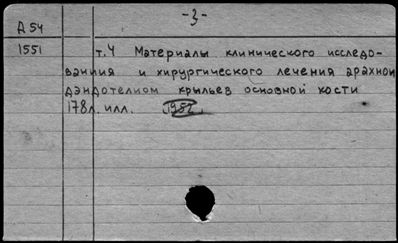 -3-
А 54
1551 т.4 Материалы клинического исследо-
ванния и хирургического лечения арахнои
дэндотелиом крыльев основной кости
178л. илл. 1952.